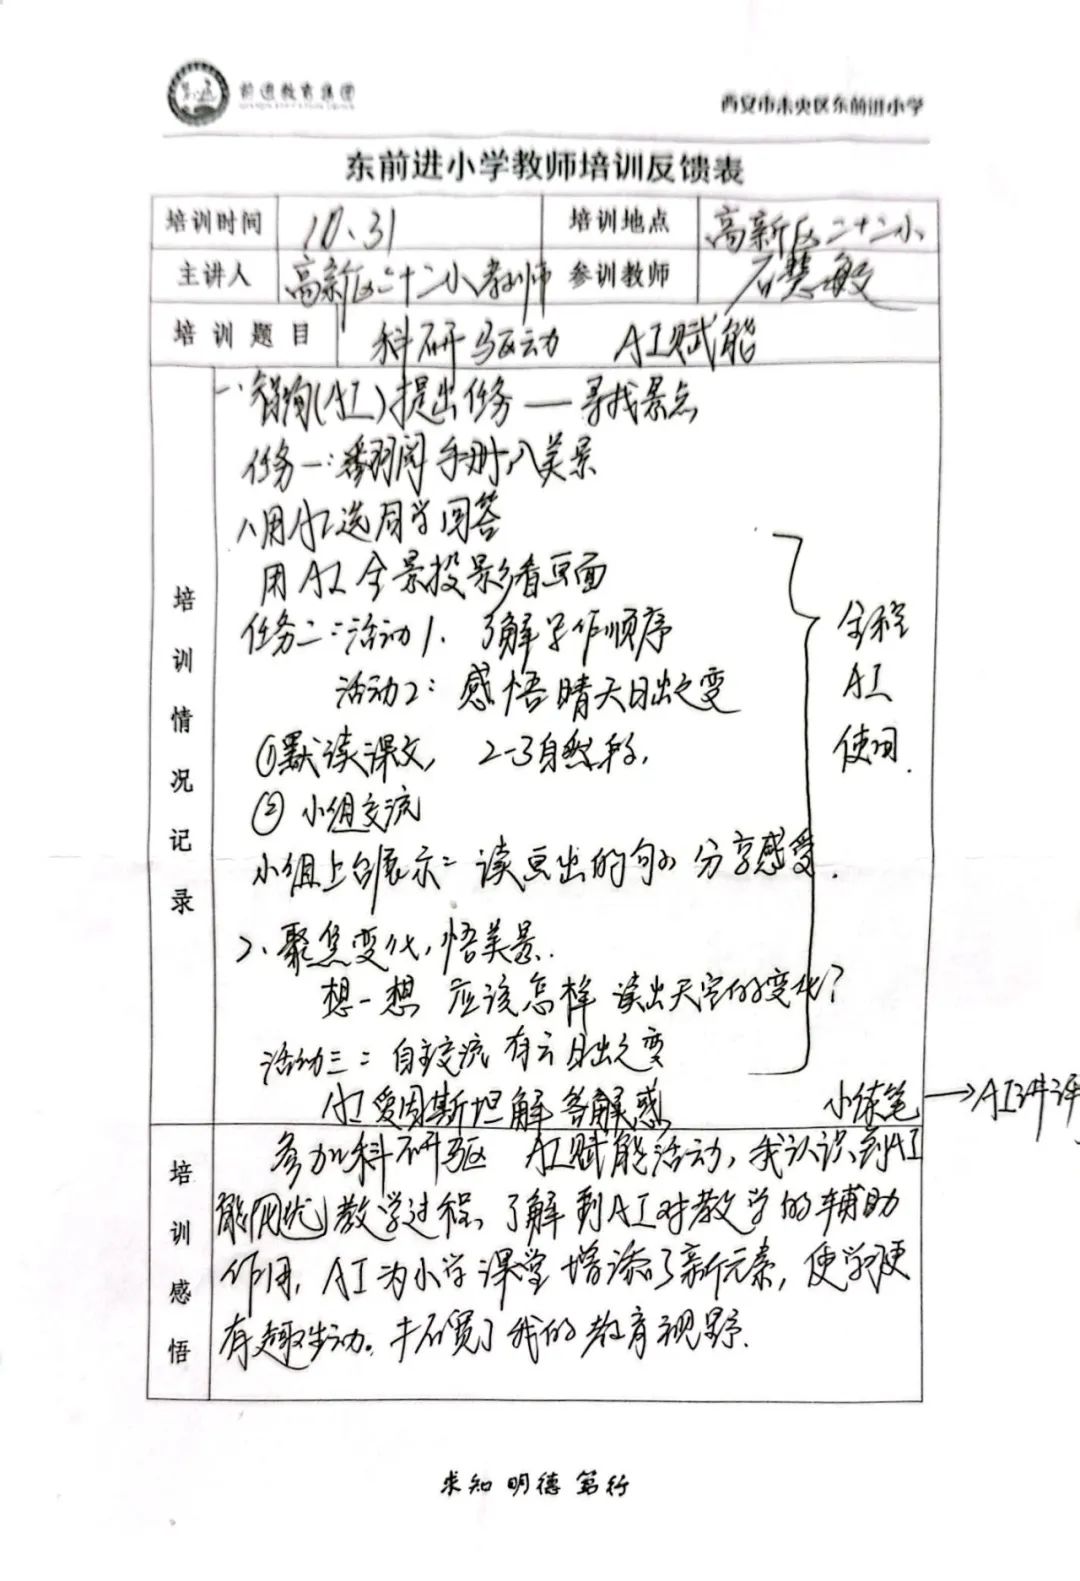 前进教育集团
西安市未央区东前进小学
东前进小学教师培训反馈表
培训时间 10、31 培训地点 高新区二十二小
主讲人 高新区二十二小教师 参训教师 石慧敏
培训题目 科研驱动 AI赋能
培训情况记录
一、(AI)提出任务——寻找景点
任务一:翻阅手册,入美景
1、用AI选同学回答
用AI全景投影看画面
任务二:活动1、了解写作顺序
活动2:感悟晴天日出之变
①默读课文,2-3自然段,
②小组交流
小组上台展示:读画出的句小 分享感受.
2、聚焦变化,悟美景.
想一想 应该怎样 读出天空的变化?
活动三:自主交流 有云日出之变
AI爱因斯坦解答解惑
全程
AI
使用.
小练笔→AI讲评
培训感悟
参加科研驱 AI赋能活动,我认识到AI
能优教学过程,了解到AI对教学的辅助
作用,AI为小学课堂增添了新元素,使学更
有趣生动。拓宽了我的教育视野.
求知 明德 笃行